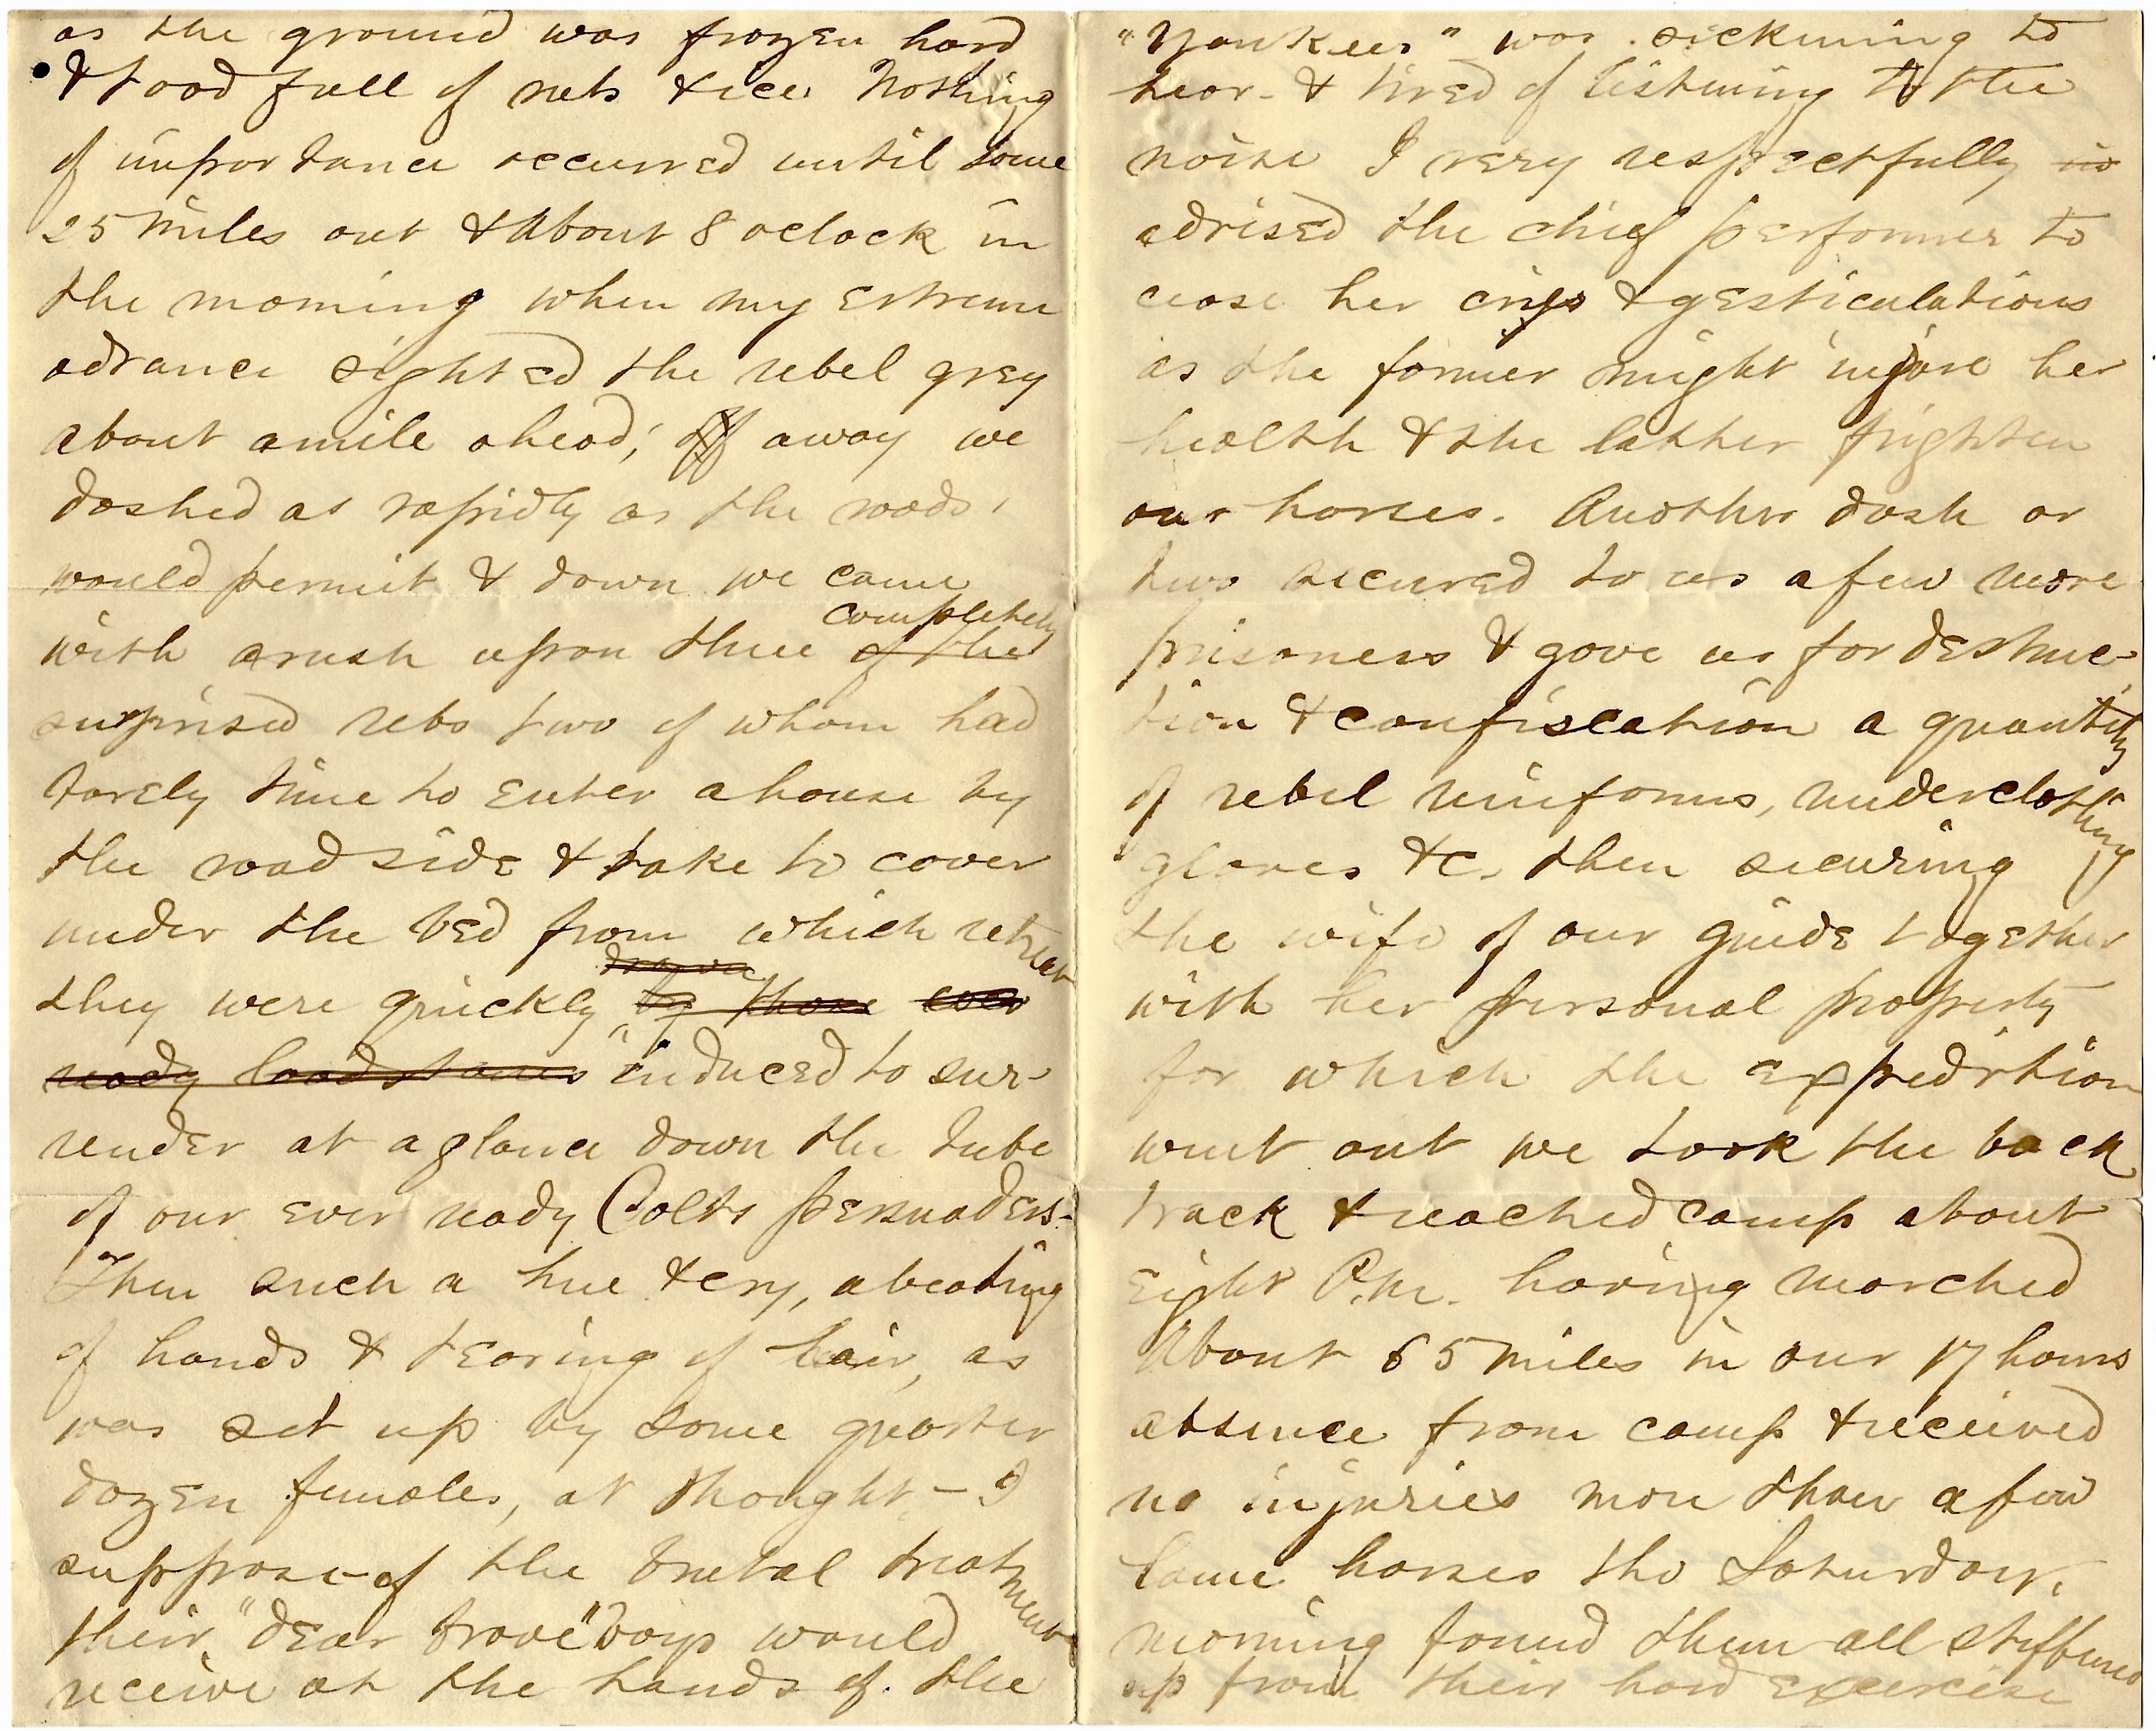 as the ground was frozen hard
& stood full of ruts & ice. Nothing
of importance occurred until some
25 miles out & About 8 oclock in
the morning when my extreme
advance sighted the rebel grey
about a mile ahead; Off away we
dashed as rapidly as the roads
would permit & down we came
completely
with a rush upon three of the
surprised rebs two of whom had
barely time to enter a house by
the road side & take to cover
under the bed from which retreat
drawn
they were quickly by those ever
ready loadstones induced to sur-
render at a glance down the tube
of our ever ready Colts persuaders.
Then such a hue & cry, a beating
of hands & tearing of hair, as
was set up by some quarter
dozen females, at thought - I
suppose - of the brutal treatment
their "dear brave" boys would
receive at the hands of the
"Yankees" was sickning to
hear - & tired of listning to the
noise I very respectfully
advised the chief performer to
cease her cries & gesticulations
as the former might injure her
health & the latter frighten
our horses. Another dash or
two secured to us a few more
prisoners & gave us for destruc-
tion & confiscation a quantity
of rebel uniforms, underclothing
gloves &c. then securing
the wife of our guide together
with her personal property
for which the expedition
went out we took the back
track & reached camp about
Eight P.M. having marched
About 65 miles in our 17 hours
absence from camp & received
no injuries more than a few
lame horses tho Saturday
morning found them all stiffened
up from their hard exercise